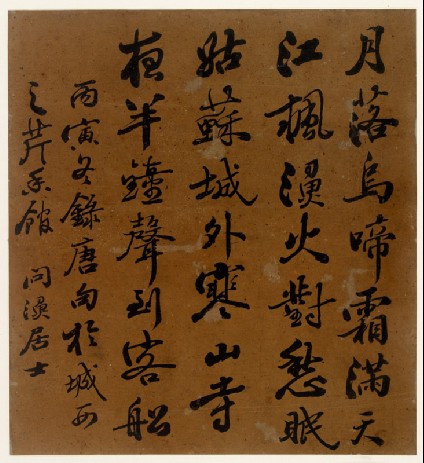 月落烏啼霜滿天
江楓漁火對愁眠
姑蘇城外寒山寺
夜半鐘聲到客船
丙寅冬錄唐句於城西
之芹香館 問漁居士